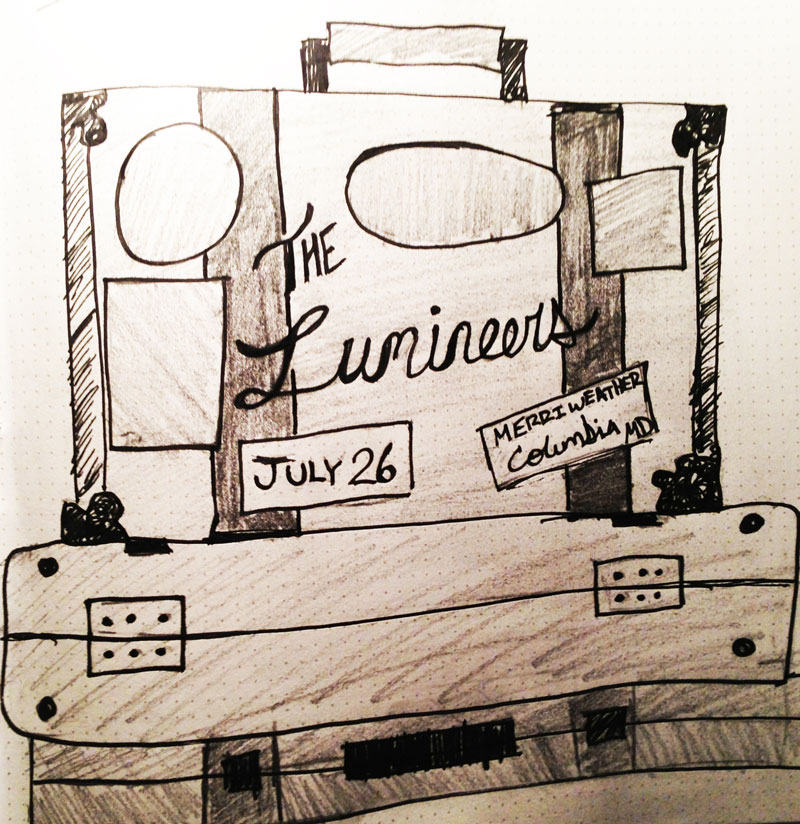 THE
Lumineers
JULY 26
MERRIWEATHER
Columbia MD